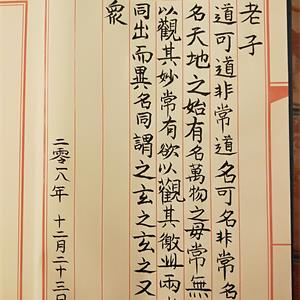 老子
道可道非常道名可名非常名
名天地之始有名萬物之母常無
以觀其妙常有欲以觀其徼此兩
同出而異名同謂之玄之玄之又
眾
二零一八年 十二月二十三日